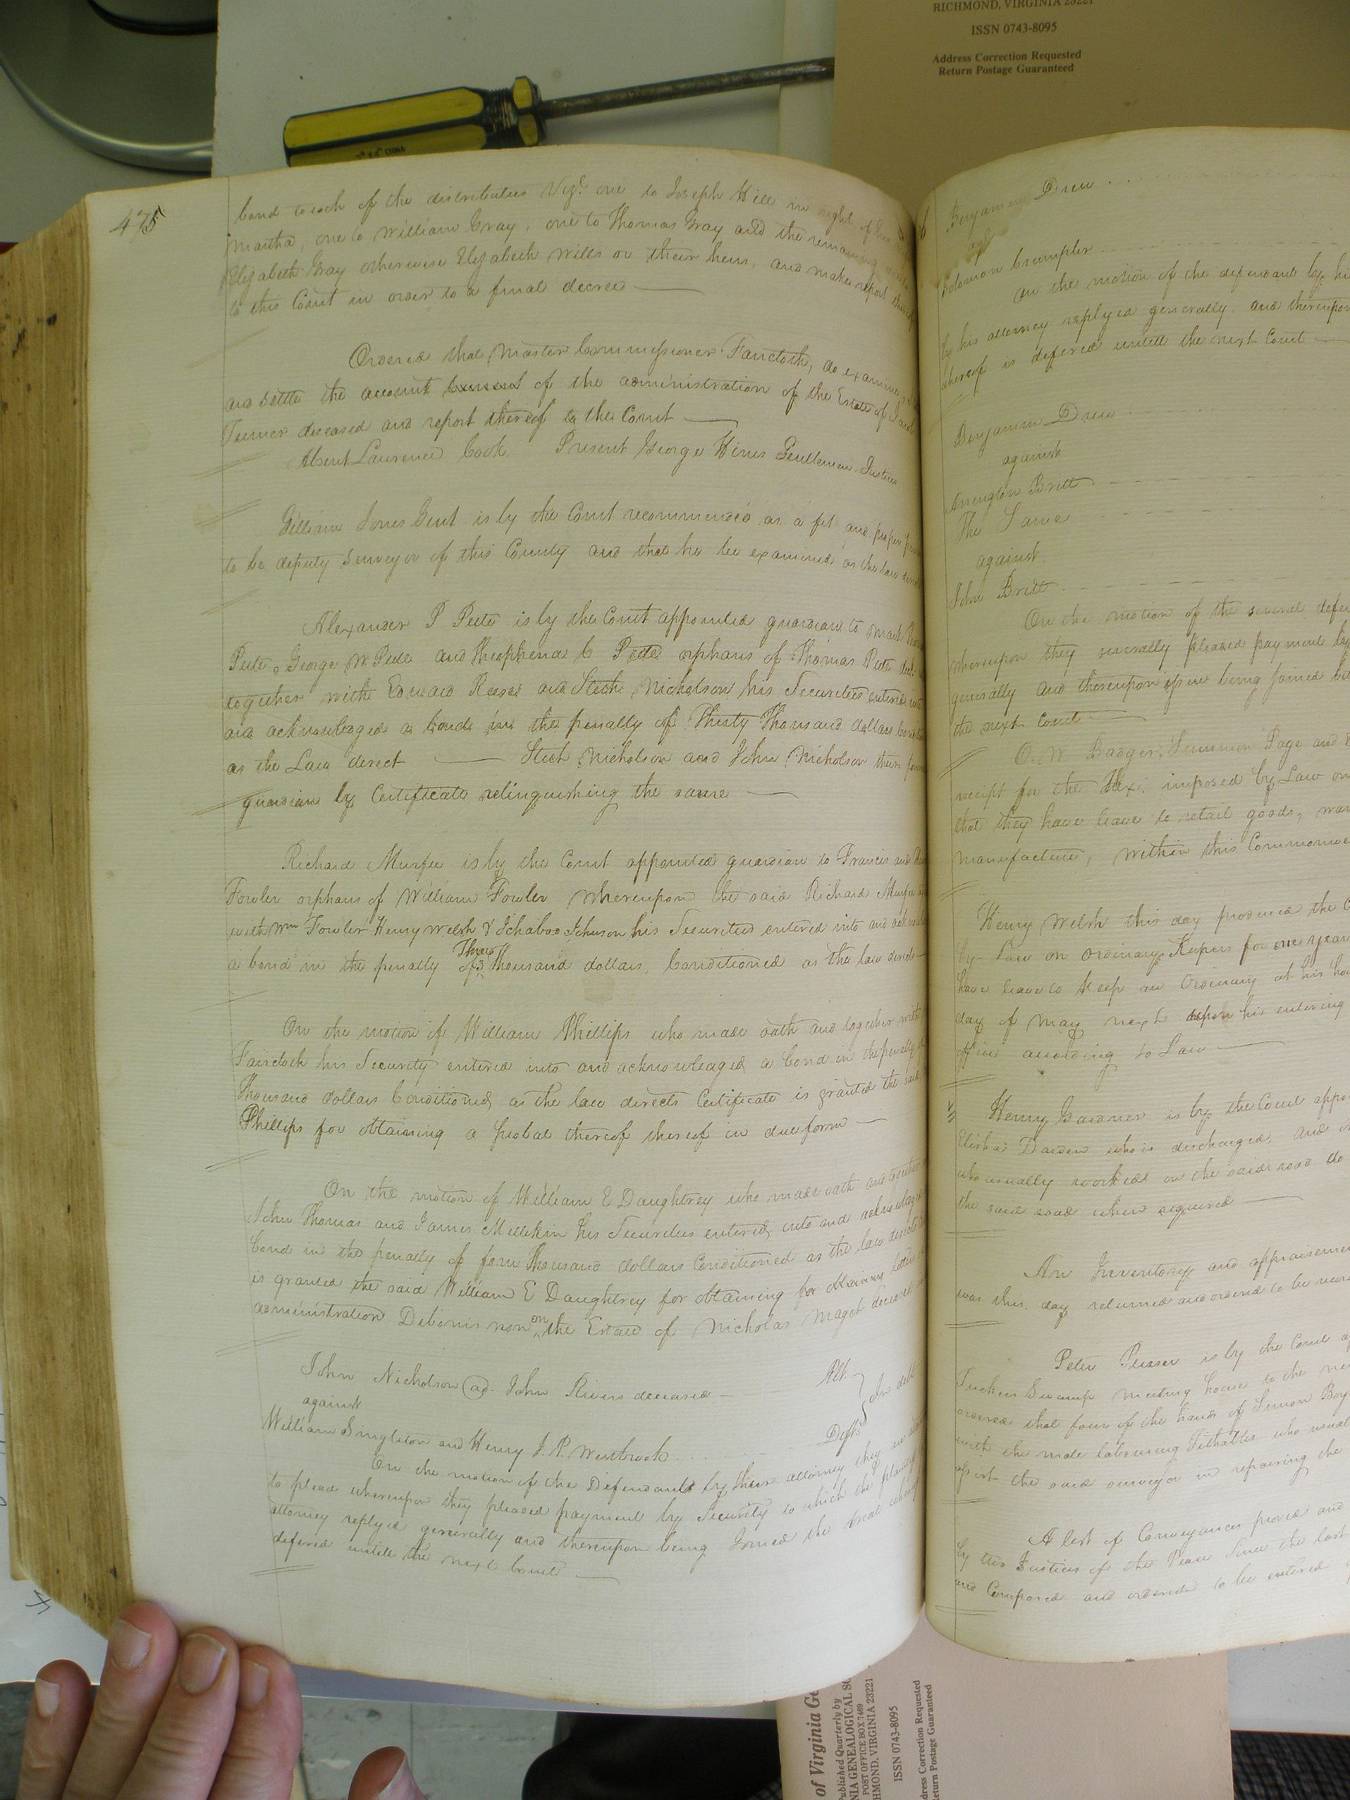 RICHMOND, VIRGINIA 23221
ISSN 0743-8095
Address Correction Requested
Return Postage Guaranteed
475
bond to each of the distributees Vizt. one to Joseph Hill in right of
Martha, one to William Gray, one to Thomas Gray and the remaining
Elizabeth Gray otherwise Elizabeth Wills or their heirs, and makes report
to this Court in order to a final decree
Ordered that Master Commissioner Fancloth, do examine
and settle the account of the administration of the Estate of
Turner deceased and report thereof to the Court
Absent Laurence Cook Present George Hines Gentleman Justice
William Jones Gent is by the Court recommended as a fit and proper
to be deputy surveyor of this County and that he be examined as the law
Alexander P Peete is by the Court appointed guardian to
Peete, George W Peete and Theophena C Peete orphans of Thomas Peete
together with Edward Reese and Steth Nicholson his Securities entered
and acknowledged a bond in the penalty of Thirty Thousand dollars
as the Law direct Steth Nicholson and John Nicholson their
guardians by Certificate relinquishing the same
Richard Murfee is by the Court appointed guardian to Francis and
Fowler orphans of William Fowler whereupon the said Richard Murfee
with Wm Fowler Henry Welsh & Ichabod Johnson his Securities entered into and
a bond in the penalty of Three Thousand dollars, Conditioned as the law directs
On the motion of William Phillips who made oath and together with
Faircloth his Security entered into and acknowledged a bond in the penalty
Thousand dollars Conditioned as the law directs Certificate is granted the said
Phillips for obtaining a probat thereof thereof in due form
On the motion of William E Daughtrey who made oath and
John Thomas and James Millikin his Securities entered into and
bond in the penalty of four Thousand dollars Conditioned as the law directs
is granted the said William E Daughtrey for obtaining for obtaining
administration Debonis non on the Estate of Nicholas Maget deceased
John Nicholson ad. John Rivers deceased Plt.
against In debt
William Singleton and Henry J. P. Westbrook Defts
On the motion of the Defendants by their attorney they
to plead whereupon they pleaded payment by Security to which the
attorney replyed generally and thereupon being Joined the trial
defered untill the next Court
Benjamin Drew
agt
Solomon Crumpler
On the motion of the defendant by
by his attorney replyed generally and thereupon
thereof is defered untill the next Court
Benjamin Drew
against
Britt
The Same
against
John Britt
On the motion of the several
whereupon they severally pleaded payment
generally and thereupon being Joined
the next Court
O. W. Badger, Page and
receipt for the Tax, imposed by Law on
that they have leave to retail goods,
manufacture, within this
Henry Welsh this day produced the
by Law on ordinary Keepers for one year
have leave to keep an Ordinary at his
day of May next upon his entering
office according to Law
Henry Gardner is by the Court
Elisha Darden who is discharged, and
who usually worked on the said road do
the said road when required
An Inventory and
was this day returned and ordered to be
Peter is by the Court
Tucker Swamp meeting house to the
ordered that four of the hands of Simon
with the male labouring Tithables who
assist the said surveyor in repairing the
A list of Conveyances proved and
by two Justices of the Peace Since the last
and Composed and ordered to be entered
of Virginia
Published Quarterly by
VIRGINIA GENEALOGICAL
POST OFFICE BOX 7469
RICHMOND, VIRGINIA 23221
ISSN 0743-8095
Address Correction Requested
Return Postage Guaranteed